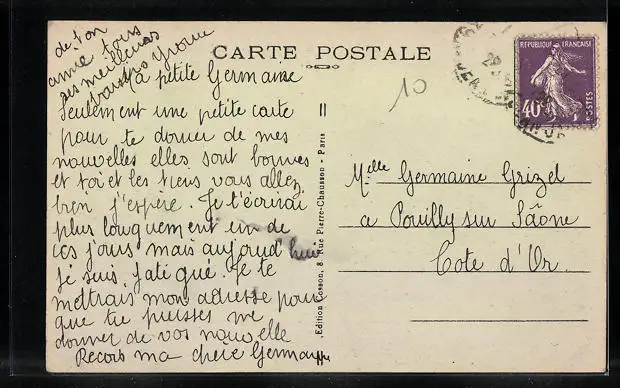 CARTE POSTALE
Ma petite Germaine
Seulement une petite carte
pour te donner de mes
nouvelles elles sont bonnes
et toi et les tiens vous allez
bien j'espère. Je t'écrirai
plus longuement un de
ces jours mais aujourd'hui
je suis fatigué. Je te
mettrais mon adresse pour
que tu puisses me
donner de vos nouvelle
Recois ma chere Germaine
de ton
amie tous
ses meilleurs
baisers Yvonne
Edition Cosson, 8, Rue Pierre-Chausson - Paris
10
REPUBLIQUE FRANÇAISE
40c
POSTES
Melle Germaine Grizel
a Pouilly sur Sâone
Cote d'Or.